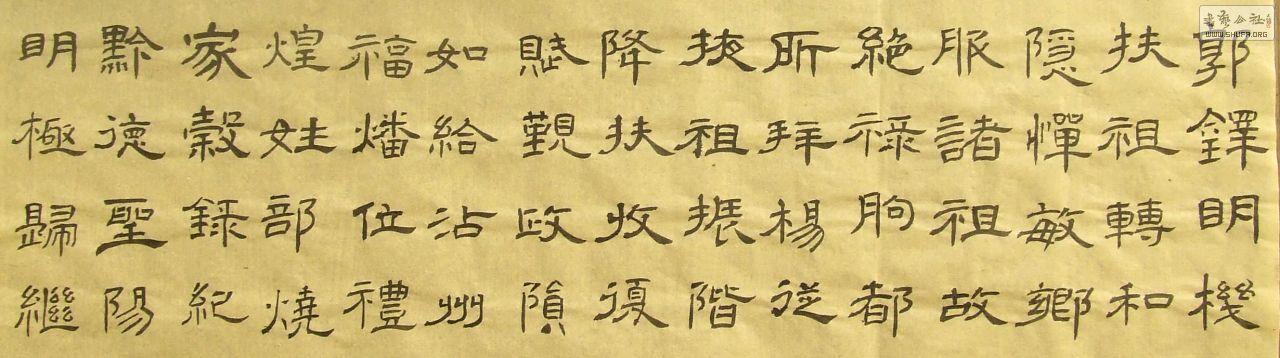 郭鐸明機
扶祖轉和
隱憚敏鄉
服諸祖故
絕祿朐都
所拜楊從
掖祖振階
降扶收復
賦覲政隕
如給沾州
福燔位禮
煌姓部燒
家穀錄紀
黔德聖陽
明極歸繼
書藝公社
WWW.SHUFA.ORG